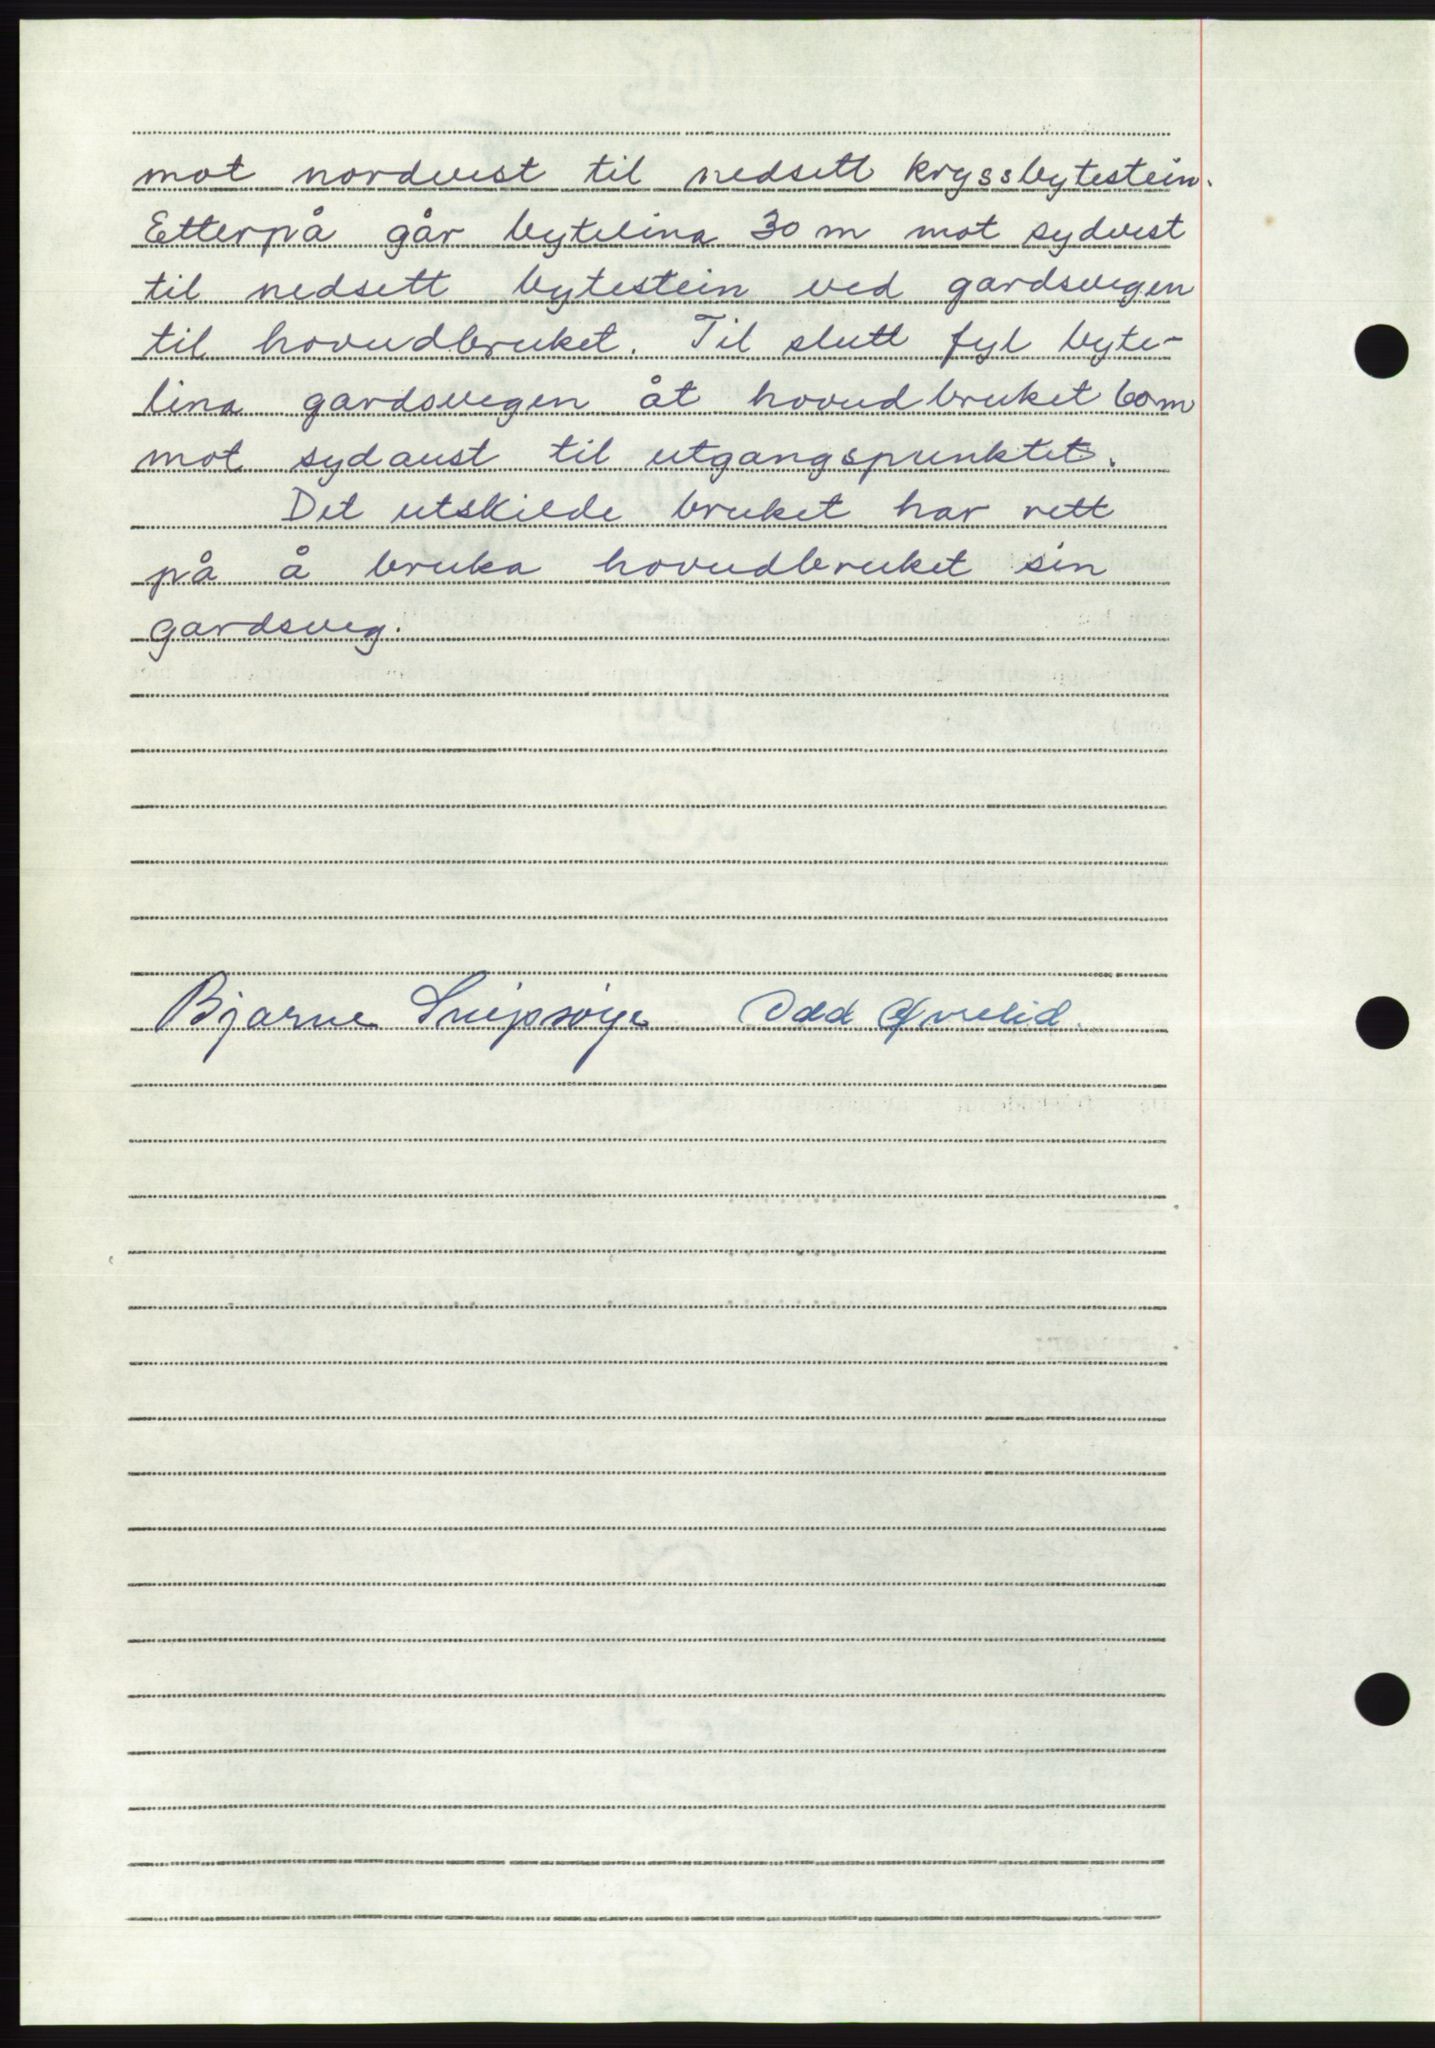 mot nordvest til nedsett kryssbytestein.
Etterpå går bytelina 30 m mot sydvest
til nedsett bytestein ved gardsvegen
til hovudbruket. Til slutt fyl byte-
lina gardsvegen åt hovudbruket 60 m
mot sydaust til utgangspunktet.
Det utskilde bruket har rett
på å bruka hovudbruket sin
gardsveg.
Bjarne Snipsøyr Odd